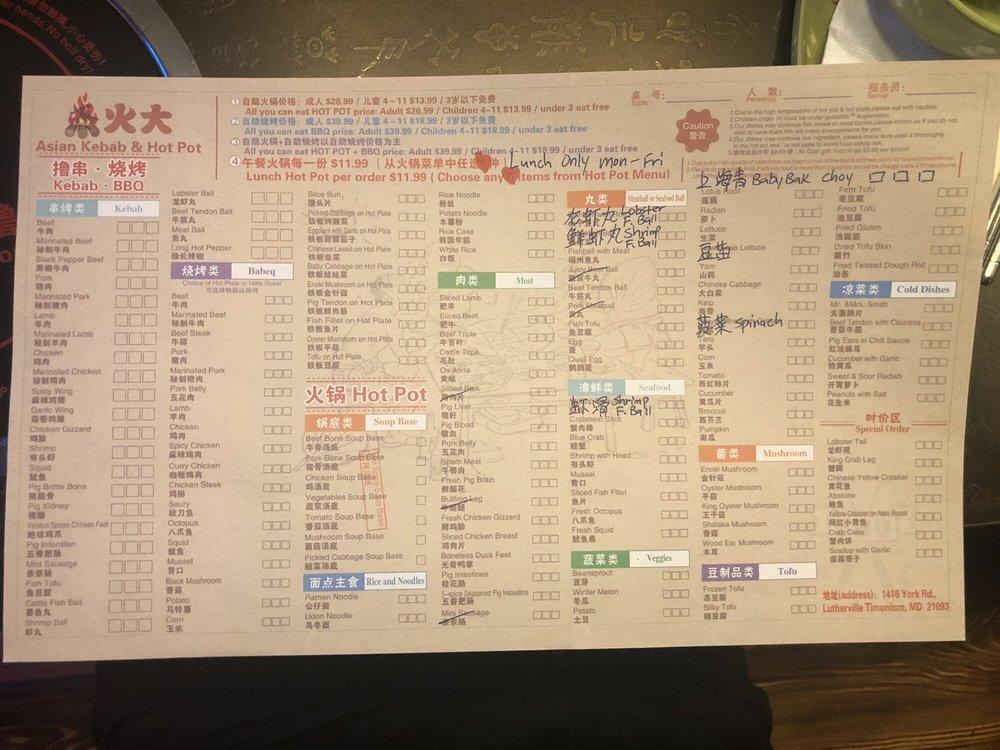 火大
Asian Kebab & Hot Pot
撸串·烧烤
Kebab · BBQ
① 自助火锅价格：成人 $26.99 / 儿童 4~11 $13.99 / 3岁以下免费
All you can eat HOT POT price: Adult $26.99 / Children 4~11 $13.99 / under 3 eat free
② 自助烧烤价格：成人 $39.99 / 儿童 4~11 $18.99 / 3岁以下免费
All you can eat BBQ price: Adult $39.99 / Children 4~11 $18.99 / under 3 eat free
③ 自助火锅+自助烧烤以自助烧烤价格为主
All you can eat HOT POT + BBQ price: Adult $39.99 / Children 4~11 $18.99 / under 3 eat free
④ 午餐火锅每一份 $11.99（从火锅菜单中任选
Lunch Hot Pot per order $11.99 ( Choose any items from Hot Pot Menu)
Lunch Only mon-Fri
桌号：
Table
人数：
Person(s)
服务员：
Server
Caution
警告
串烤类 Kebab
Beef
牛肉
Marinated Beef
秘制牛肉
Black Pepper Beef
黑椒牛肉
Pork
猪肉
Marinated Pork
秘制猪肉
Lamb
羊肉
Marinated Lamb
秘制羊肉
Chicken
鸡肉
Marinated Chicken
秘制鸡肉
Spicy Wing
麻辣鸡翅
Garlic Wing
蒜香鸡翅
Chicken Gizzard
鸡胗
Shrimp
有头虾
Squid
鱿鱼
Pig Brittle Bone
猪脆骨
Pig Kidney
猪腰
Various Spices Chicken Feet
绝味鸡爪
Pig Intenstien
五香肥肠
Mini Saosage
亲亲肠
Fish Tofu
鱼豆腐
Cattle Fish Ball
墨鱼丸
Shrimp Ball
虾丸
Lobster Ball
龙虾丸
Beef Tendon Ball
牛筋丸
Meat Ball
贡丸
Long Hot Pepper
绿长辣椒
烧烤类 Babeq
Choice of Hot Plate or Nats Roast
可选择铁板或网烤
Beef
牛肉
Marinated Beef
秘制牛肉
Beef Steak
牛排
Pork
猪肉
Marinated Pork
秘制猪肉
Pork Belly
五花肉
Lamb
羊肉
Chicken
鸡肉
Spicy Chicken
麻辣鸡肉
Curry Chicken
咖喱鸡肉
Chicken Steak
鸡排
Saury
秋刀鱼
Octopus
八爪鱼
Squid
鱿鱼
Mussel
青口
Black Mushroom
香菇
Potato
马铃薯
Corn
玉米
Slice Bun
馒头片
Pickled Cabbage on Hot Plate
铁板烤酸菜
Eggplant with Garlic on Hot Plate
铁板蒜蓉茄子
Chinese Leeks on Hot Plate
铁板韭菜
Baby Cabbage on Hot Plate
铁板娃娃菜
Enoki Mushroom on Hot Plate
铁板金针菇
Pig Tendon on Hot Plate
铁板鲜肉筋
Fish Fillet on Hot Plate
铁板鱼片
Oyster Mushroom on Hot Plate
铁板平菇
Tofu on Hot Plate
铁板豆腐
火锅 Hot Pot
锅底类 Soup Base
Beef Bone Soup Base
牛骨汤底
Pork Bone Soup Base
猪骨汤底
Chicken Soup Base
鸡汤底
Vegetables Soup Base
蔬菜汤底
Tomato Soup Base
番茄汤底
Mushroom Soup Base
蘑菇汤底
Pickled Cabbage Soup Base
酸菜汤底
面点主食 Rice and Noodles
Ramen Noodle
公仔面
Udon Noodle
乌冬面
Rice Noodle
粉丝
Potato Noodle
木薯粉
Rice Cake
韩国年糕
White Rice
白饭
肉类 Meat
Sliced Lamb
肥羊
Sliced Beef
肥牛
Beef Triple
牛百叶
Cattle Triple
毛肚
Ox Aoria
黄喉
Sliced Pork
猪肉片
Pig Liver
猪肝
Pig Blood
猪血
Pork Belly
五花肉
Spam Meat
午餐肉
Fresh Pig Brain
鲜脑花
Bullfrog Leg
Fresh Chicken Gizzard
鲜鸡胗
Sliced Chicken Breast
鸡肉片
Boneless Duck Feet
无骨鸭掌
Pig Intestines
桂花肠
5-spice Seasoned Pig Instestine
五香肥肠
Mini Sausage
亲亲肠
丸类 Meatball or Seafood Ball
龙虾丸 Lobster F. Ball
鲜虾丸 Shrimp F. Ball
Fishball with Meat
福州鱼丸
Juicy Beef Ball
Beef Tendon Ball
牛筋丸
Pork Meatball
贡丸
Fish Tofu
鱼豆腐
Egg
蛋
Quail Egg
鹌鹑蛋
海鲜类 Seafood
虾滑 Shrimp F. Ball
Crabmeat Stick
蟹肉棒
Blue Crab
螃蟹
Shrimp with Head
有头虾
Mussel
青口
Sliced Fish Fillet
鱼片
Fresh Octopus
八爪鱼
Fresh Squid
鱿鱼卷
蔬菜类 · Veggies
Beansprout
豆芽
Winter Melon
冬瓜
Potato
土豆
上海青 Baby Bak Choy 口 口 口
Lotus Root
莲藕
Radish
萝卜
Lettuce
生菜
豆苗
Lettuce
Yam
山药
Chinese Cabbage
大白菜
Kelp
海带
菠菜 Spinach
Taro
芋头
Corn
玉米
Tomato
西红柿片
Cucumber
黄瓜片
Broccoli
西芥兰
Pumpkin
南瓜
菌类 Mushroom
Enoki Mushroom
金针菇
Oyster Mushroom
平菇
King Oyster Mushroom
王子菇
Shitake Mushroom
香菇
Wood Ear Mushroom
木耳
豆制品类 Tofu
Frozen Tofu
冻豆腐
Silky Tofu
嫩豆腐
Firm Tofu
老豆腐
Fried Tofu
油豆腐
Fried Gluten
油面筋
Dried Tofu Skin
腐竹
Fried Twisted Dough Roll
油条
凉菜类 Cold Dishes
Mr. &Mrs. Smith
夫妻肺片
Beef Tendon with Cilantros
香菜牛筋
Pig Ears in Chili Sauce
红油脆耳
Cucumber with Garlic
拍黄瓜
Sweet & Sour Radish
开胃萝卜
Peanuts with Salt
花生米
时价区
Special Order
Lobster Tail
龙虾尾
King Crab Leg
蟹脚
Chinese Yellow Croaker
黄花鱼
Abalone
鲍鱼
Yellow Croaker on Nats Roast
网红小黄鱼
Crab Cake
蟹肉饼
Scallop with Garlic
蒜蓉带子
地址(address): 1416 York Rd.,
Lutherville Timonium, MD 21093